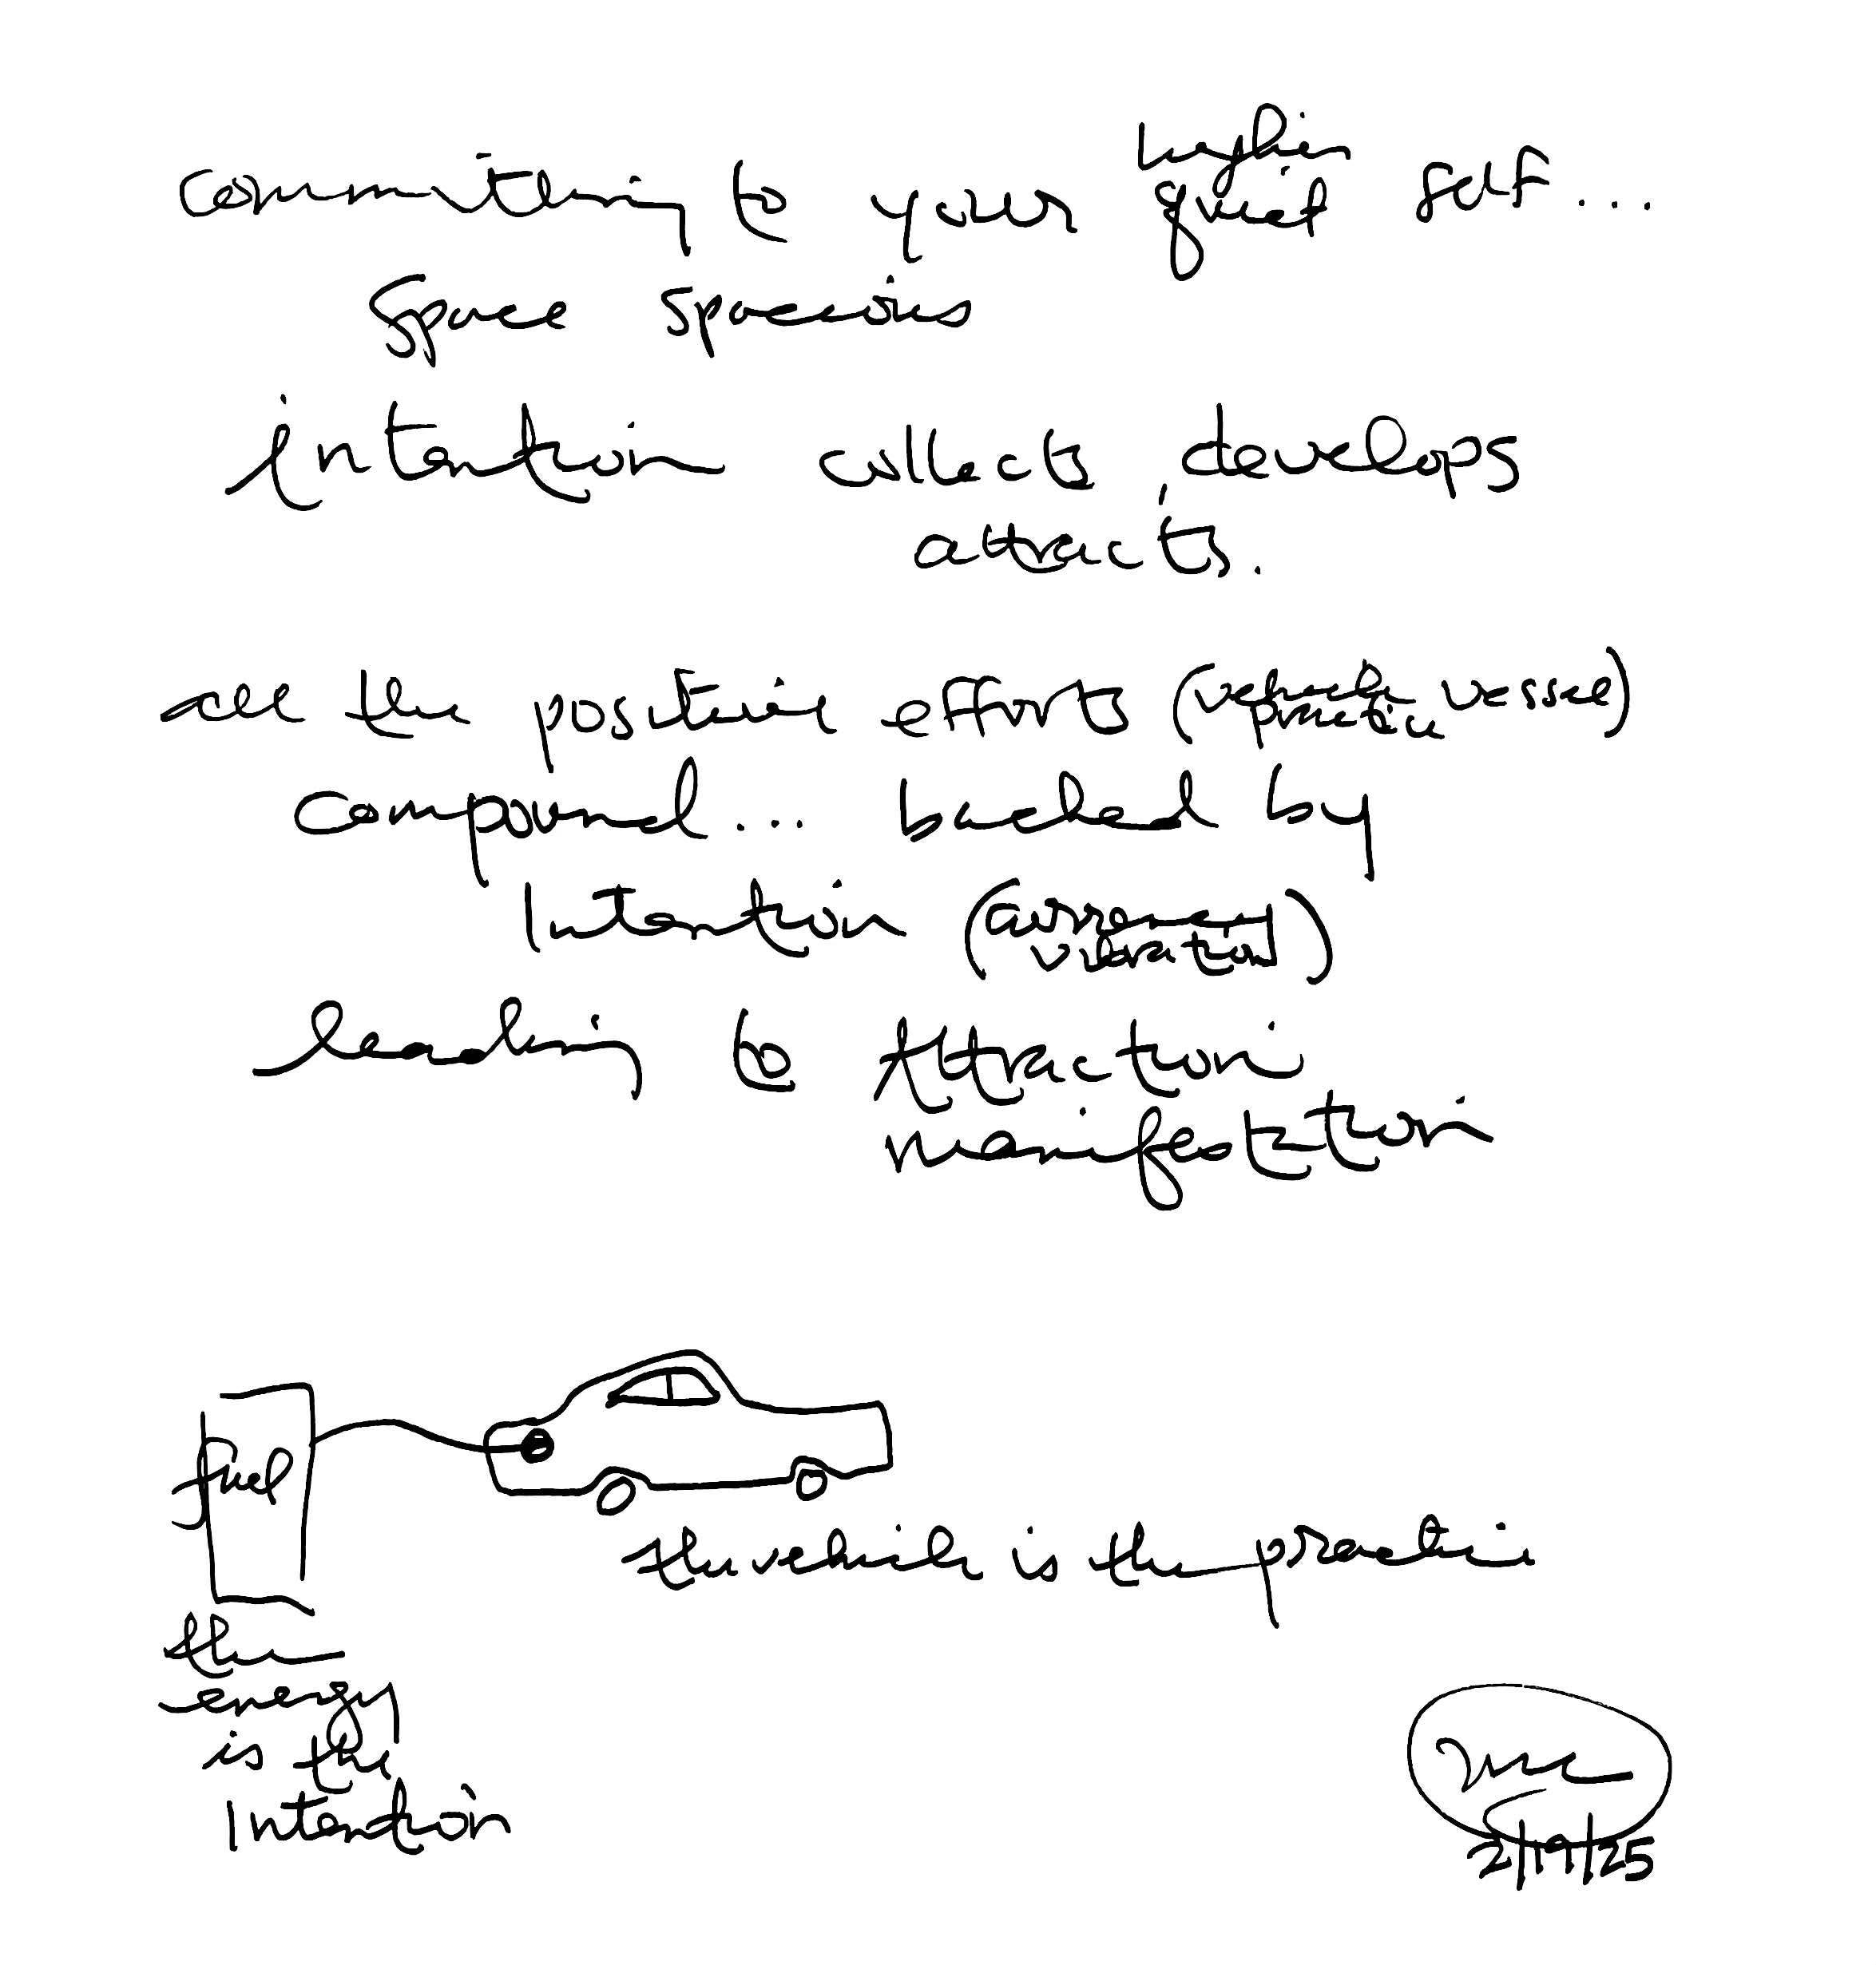 higher
committing to your quiet self ...
space spacious
intention collects develops
attracts.
all the positive efforts (vehicle vessel)
practice
compound ... backed by
Intention (currency
vibration)
leading to Attraction
manifestation
fuel
the vehicle is the practice
the
energy
is the
Intention
2/19/25